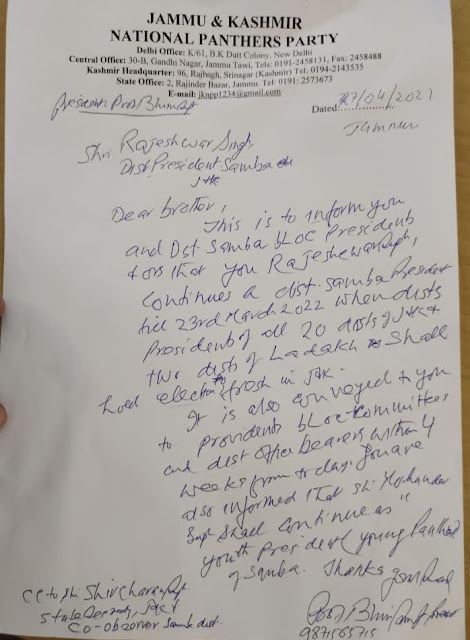 JAMMU & KASHMIR
NATIONAL PANTHERS PARTY
Delhi Office: K/61, B.K Dutt Colony, New Delhi
Central Office: 30-B, Gandhi Nagar, Jammu Tawi, Tels: 0191-2458131, Fax: 2458488
Kashmir Headquarter: 96, Rajbagh, Srinagar (Kashmir) Tel: 0194-2143535
State Office: 2, Rajinder Bazar, Jammu. Tel: 0191: 2573673
E-mail: jknpp1234@gmail.com
President: Prof. Bhim
Dated: 27/04/2021
Jammu
Shri Rajeshwar Singh,
Dist. President Samba
J+K
Dear brother,
This is to inform you
and Dst Samba bLoc Presidents
that you Rajeshewar
Continues a dist. Samba President
till 23rd March 2022 when dists
President of all 20 dists of J+K +
two dists of Ladakh Shall
hold election fresh in J+K.
It is also conveyed to you
to providents bLoc Committee
and dist office bearers within 4
weeks from today. You are
also informed that Shi
Shall Continue as "
youth President young
of Samba. Thanks
CC to Shi Shiv Charan
State J+K
Co-observer Samba dist.
Prof. Bhim
9871565715